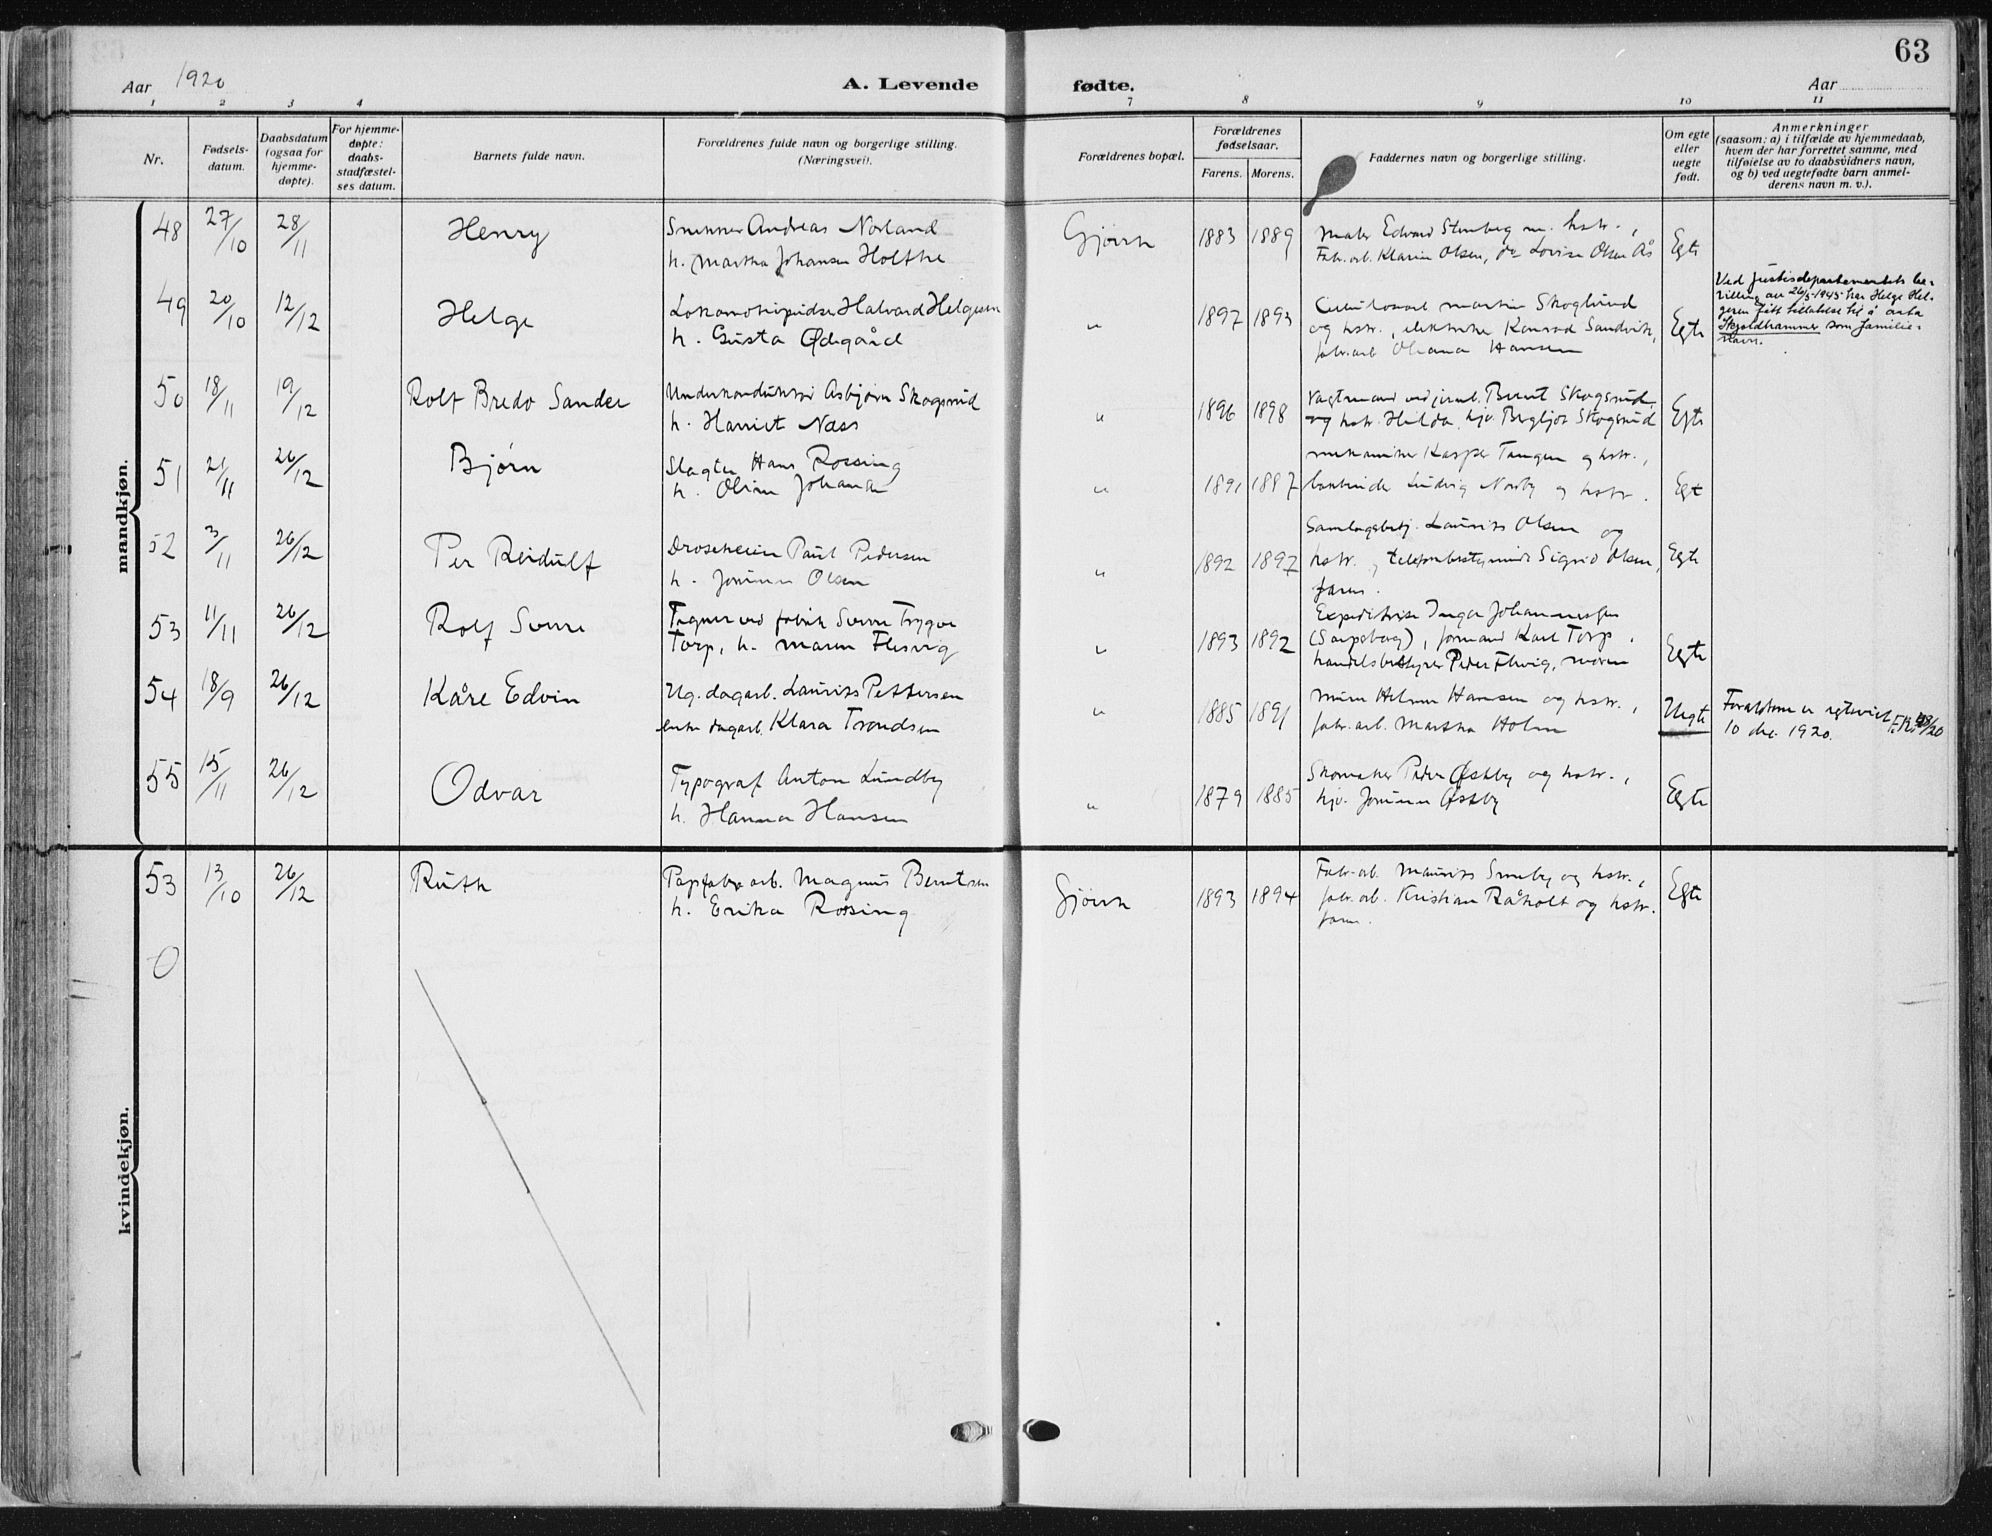 63
Aar 1920
A. Levende fødte.
Aar
1 2 3 4 7 8 9 10 11
Nr.
Fødsels-
datum.
Daabsdatum
(ogsaa for
hjemme-
døpte).
For hjemme-
døpte:
daabs-
stadfæstel-
ses datum.
Barnets fulde navn.
Forældrenes fulde navn og borgerlige stilling.
(Næringsvei).
Forældrenes bopæl.
Forældrenes
fødselsaar.
Farens. Morens.
Faddernes navn og borgerlige stilling.
Om egte
eller
uegte
født.
Anmerkninger
(saasom: a) i tilfælde av hjemmedaab,
hvem der har forrettet samme, med
tilføielse av to daabsvidners navn,
og b) ved uegtefødte barn anmel-
derens navn m. v.).
mandkjøn.
48 27/10 28/11 Henry
Snekker Andreas Norland
h. Martha Johansen Holthe
Gjøvik 1883 1889
Maler Edvard Stenberg m. hstr.,
Fabr. arb. Klarin Olsen, do Lovise Olsen Ås
Egte
49 20/10 12/12 Helge
Halvard Helgesen
h. Gusta Ødegård
" 1897 1893
Martin Skoglund
og hstr., elektriker Konrad Sandvik,
fabr. arb. Hansen
Egte
Ved Justisdepartementets be-
villing av 26/5-1945 har Helge Hel-
gesen fått tillatelse til å anta
Skjoldhammer som familie-
navn.
50 18/11 19/12 Rolf Bredo Sander
Underkonduktør Asbjørn Skogsrud
h. Harriet Næss
" 1896 1898
Vagtmand ved jernb. Bernt Skogsrud
og hstr. Hilda, hjv. Bergljot Skogsrud
Egte
51 21/11 26/12 Bjørn
Slagter Hans Rossing
h. Oline Johansen
" 1891 1897
mekaniker Kasper Tangen og hstr.,
Ludvig Norby og hstr.
Egt
52 3/11 26/12 Per Reidulf
Droscheeier Paul Pedersen
h. Jorunn Olsen
" 1892 1897
Samlagsbetj. Laurits Olsen og
hstr., Sigrid Olsen,
faren.
Egte
53 11/11 26/12 Rolf Sverre
Tegner ved fabrik Sverre Trygve
Torp, h. Maren Flesvig
" 1893 1892
Expeditrise Inga Johannessen
(Sarpsborg), formand Karl Torp,
handelsbestyrer Peder Flesvig, moren
Egte
54 18/9 26/12 Kåre Edvin
Ug. dagarb. Laurits Pettersen
enke dagarb. Klara Trondsen
" 1885 1891
Murer Helmer Hansen og hstr.,
fabr. arb. Martha Holm
Uegte
Forældrene er egteviet
10 de. 1920.
55 15/11 26/12 Odvar
Typograf Anton Lundby
h. Hanna Hansen
" 1879 1885
Skomaker Peder Østby og hstr.,
hjv. Jorunn Østby
Egte
kvindekjøn.
53 13/10 26/12 Ruth
Papfabr. arb. Magnus Berntsen
h. Erika Rossing
Gjøvik 1893 1894
Fabr. arb. Maurits Smeby og hstr.,
fabr. arb. Kristian Råholt og hstr.
faren.
Egte
0